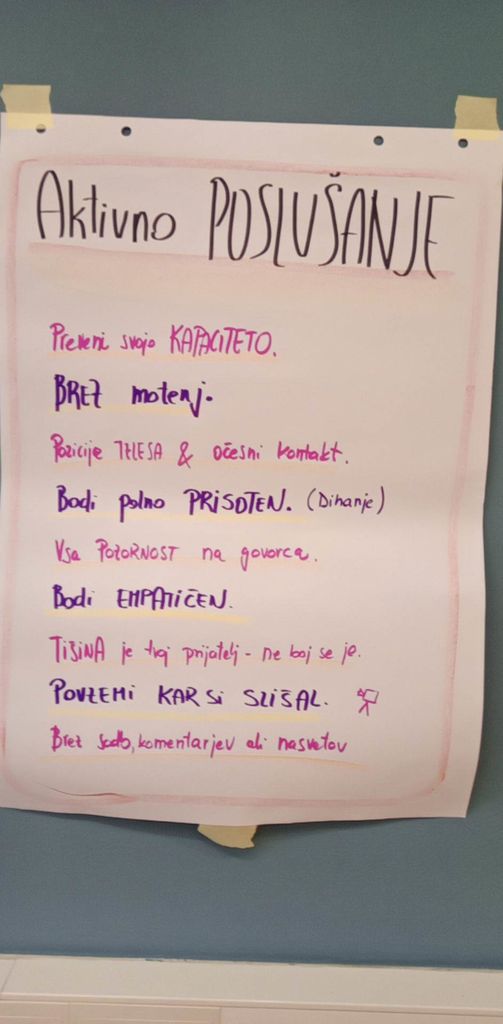 Aktivno POSLUŠANJE
Preveri svojo KAPACITETO.
BREZ motenj.
Pozicije TELESA & očesni kontakt.
Bodi polno PRISOTEN. (Dihanje)
Vsa POZORNOST na govorca.
Bodi EMPATIČEN.
TIŠINA je tvoj prijatelj - ne boj se je.
POVZEMI KAR SI SLIŠAL.
Brez sodb, komentarjev ali nasvetov